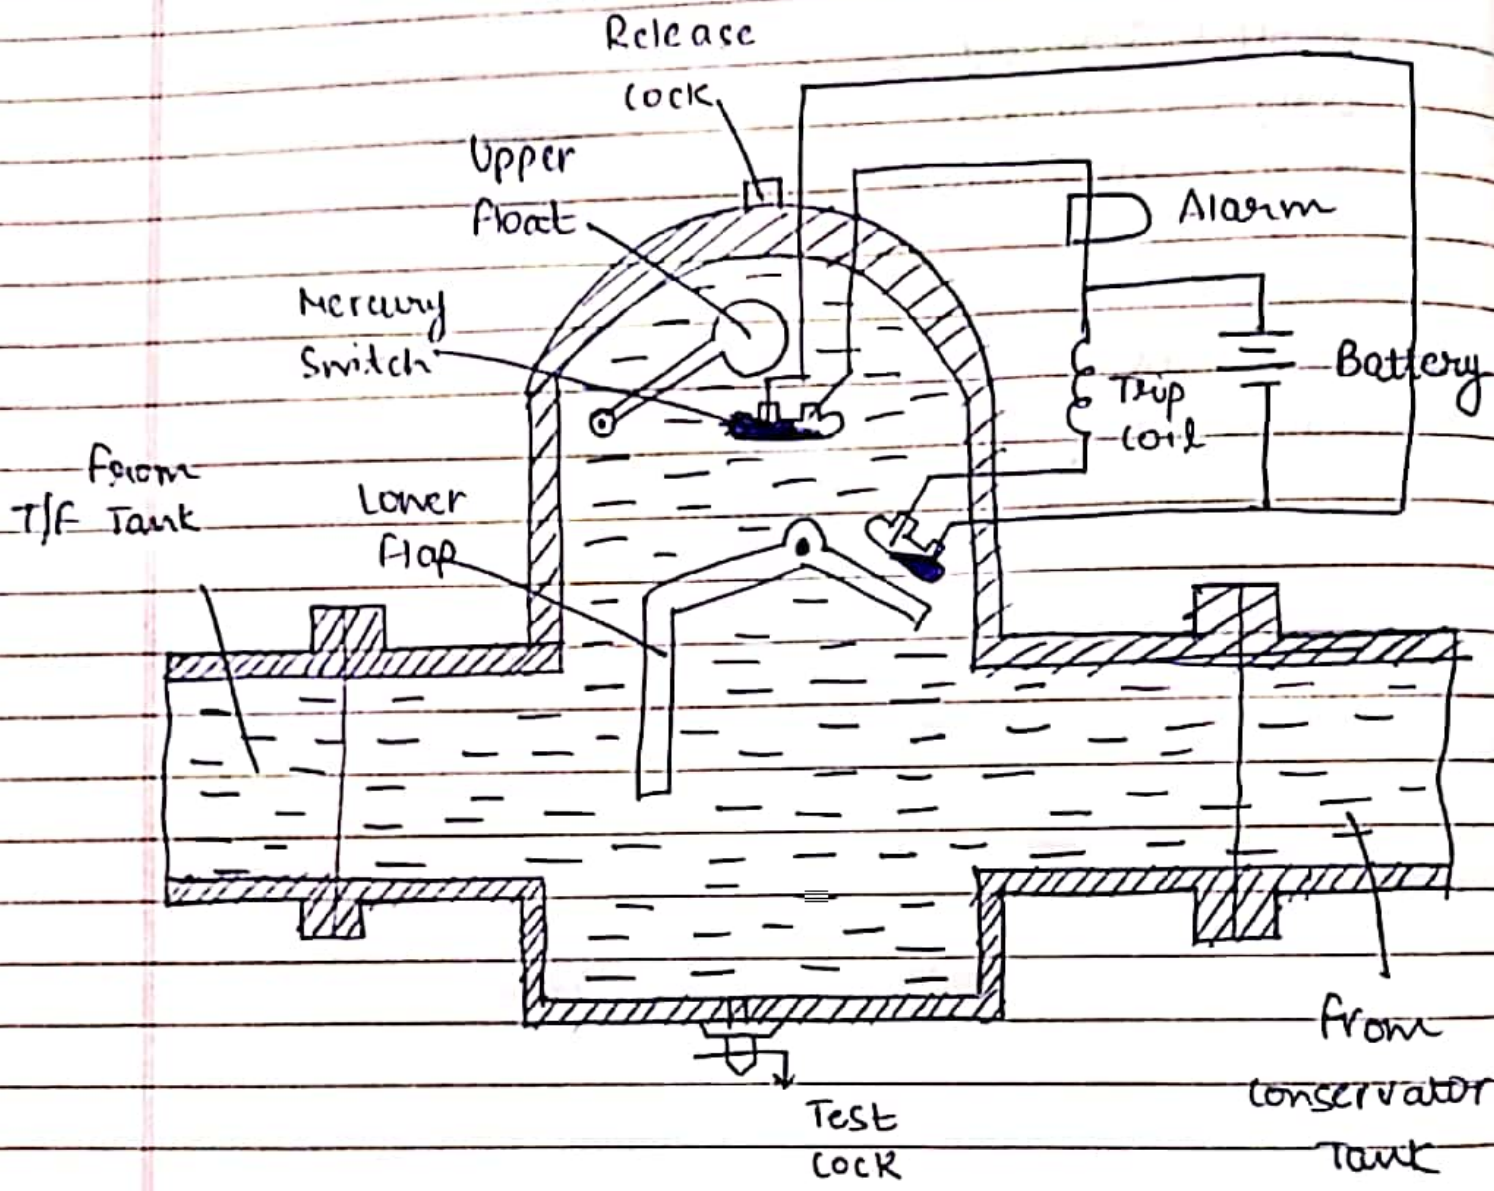 Release
Cock
Upper
float
Mercury
Switch
Alarm
Battery
Trip
Coil
From
T/F Tank
Lower
flap
From
Conservator
Tank
Test
Cock